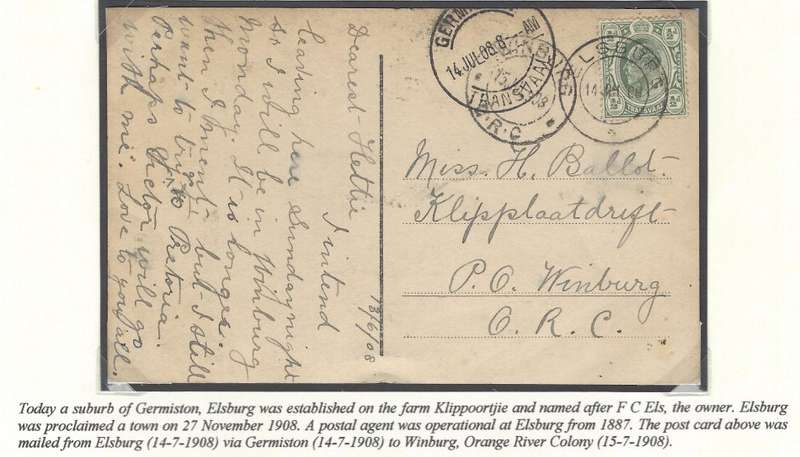 13/6/08
Dearest Hettie
I intend
leaving here Sunday night
so I will be in Winburg
Monday. It is longer
then I ment but I still
want to to Pretoria.
Perhaps Victor will go
with me. Love to you all.
GERMI
14 JUL 08 8 AM
TRANSVAAL
NBURG
15
O.R.C
LSBURG
14 08
TRANSVAAL
Miss. H. Ballot.
Klipplaatdrift
P. O. Winburg
O. R. C.
Today a suburb of Germiston, Elsburg was established on the farm Klippoortjie and named after F C Els, the owner. Elsburg
was proclaimed a town on 27 November 1908. A postal agent was operational at Elsburg from 1887. The post card above was
mailed from Elsburg (14-7-1908) via Germiston (14-7-1908) to Winburg, Orange River Colony (15-7-1908).